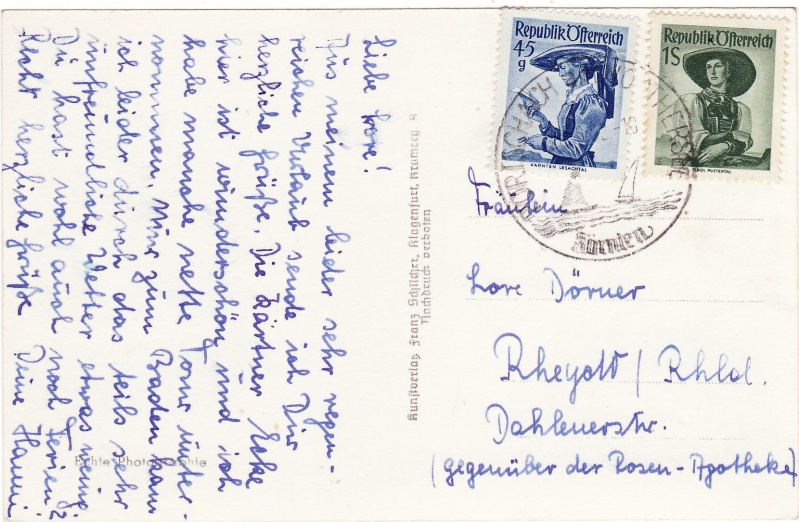 Liebe Lore!
Aus meinem leider sehr regen-
reichen Urlaub sende ich Dir
herzliche Grüße. Die Kärtner Ecke
hier ist wunderschön und ich
habe manche nette Tour unter-
nommen. Nur zum Baden kam
ich leider durch das teils sehr
unfreundliche Wetter etwas wenig.
Du hast wohl auch noch Ferien?
Recht herzliche Grüße Deine Hanni
Echte Photographie
Kunstverlag Franz Schilcher, Klagenfurt, Kramerg 8
Nachdruck verboten
Republik Österreich
45
g
KÄRNTEN LESACHTAL
Republik Österreich
1S
TIROL PUSTERTAL
Kärnten
Fräulein
Lore Dörner
Rheydt / Rhld.
Dahlenerstr.
(gegenüber der Rosen-Apotheke)